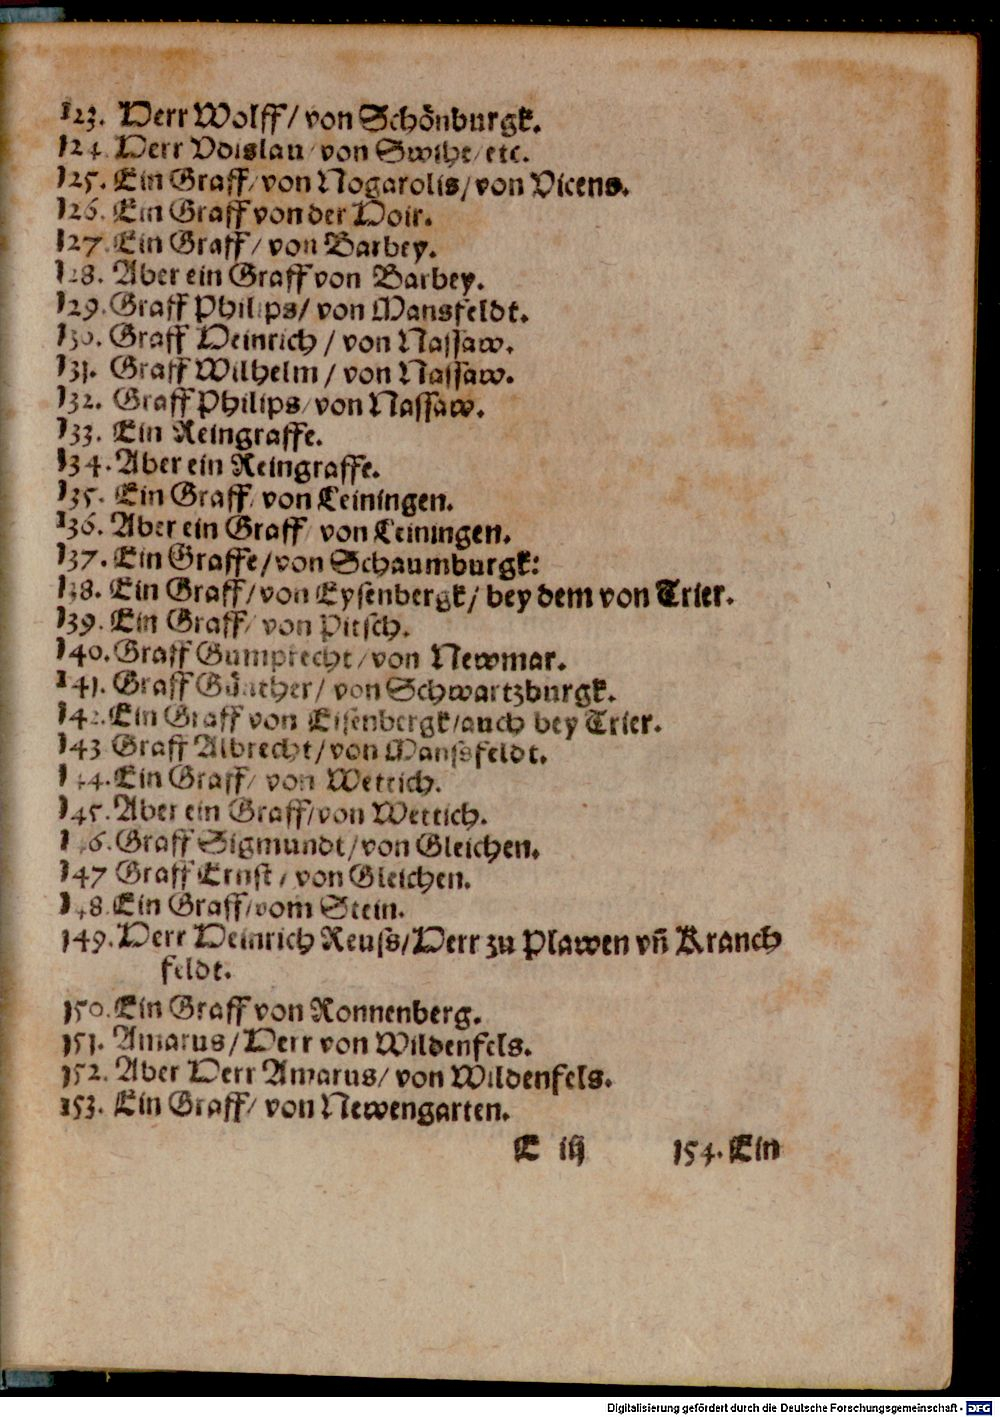 123. Herr Wolff/ von Schönburgk.
124. Herr Voislau/ von Swihe/ etc.
125. Ein Graff/ von Nogarolis/ von Vicens.
126. Ein Graff von der Hoir.
127. Ein Graff/ von Barbey.
128. Aber ein Graff von Barbey.
129. Graff Philips/ von Mansfeldt.
130. Graff Heinrich/ von Nassaw.
131. Graff Wilhelm/ von Nassaw.
132. Graff Philips/ von Nassaw.
133. Ein Reingraffe.
134. Aber ein Reingraffe.
135. Ein Graff/ von Leiningen.
136. Aber ein Graff/ von Leiningen.
137. Ein Graffe/ von Schaumburgk:
138. Ein Graff/ von Eysenbergk/ bey dem von Trier.
139. Ein Graff/ von Pitsch.
140. Graff Gumprecht/ von Newmar.
141. Graff Günther/ von Schwartzburgk.
142. Ein Graff von Eisenbergk/ auch bey Trier.
143 Graff Albrecht/ von Manssfeldt.
144. Ein Graff/ von Wettich.
145. Aber ein Graff/ von Wettich.
146. Graff Sigmundt/ von Gleichen.
147 Graff Ernst/ von Gleichen.
148. Ein Graff/ vom Stein.
149. Herr Heinrich Reuss/ Herr zu Plawen vn̄ Kranch
feldt.
150. Ein Graff von Ronnenberg.
151. Amarus/ Herr von Wildenfels.
152. Aber Herr Amarus/ von Wildenfels.
153. Ein Graff/ von Newengarten.
E iij 154. Ein
Digitalisierung gefördert durch die Deutsche Forschungsgemeinschaft - DFG